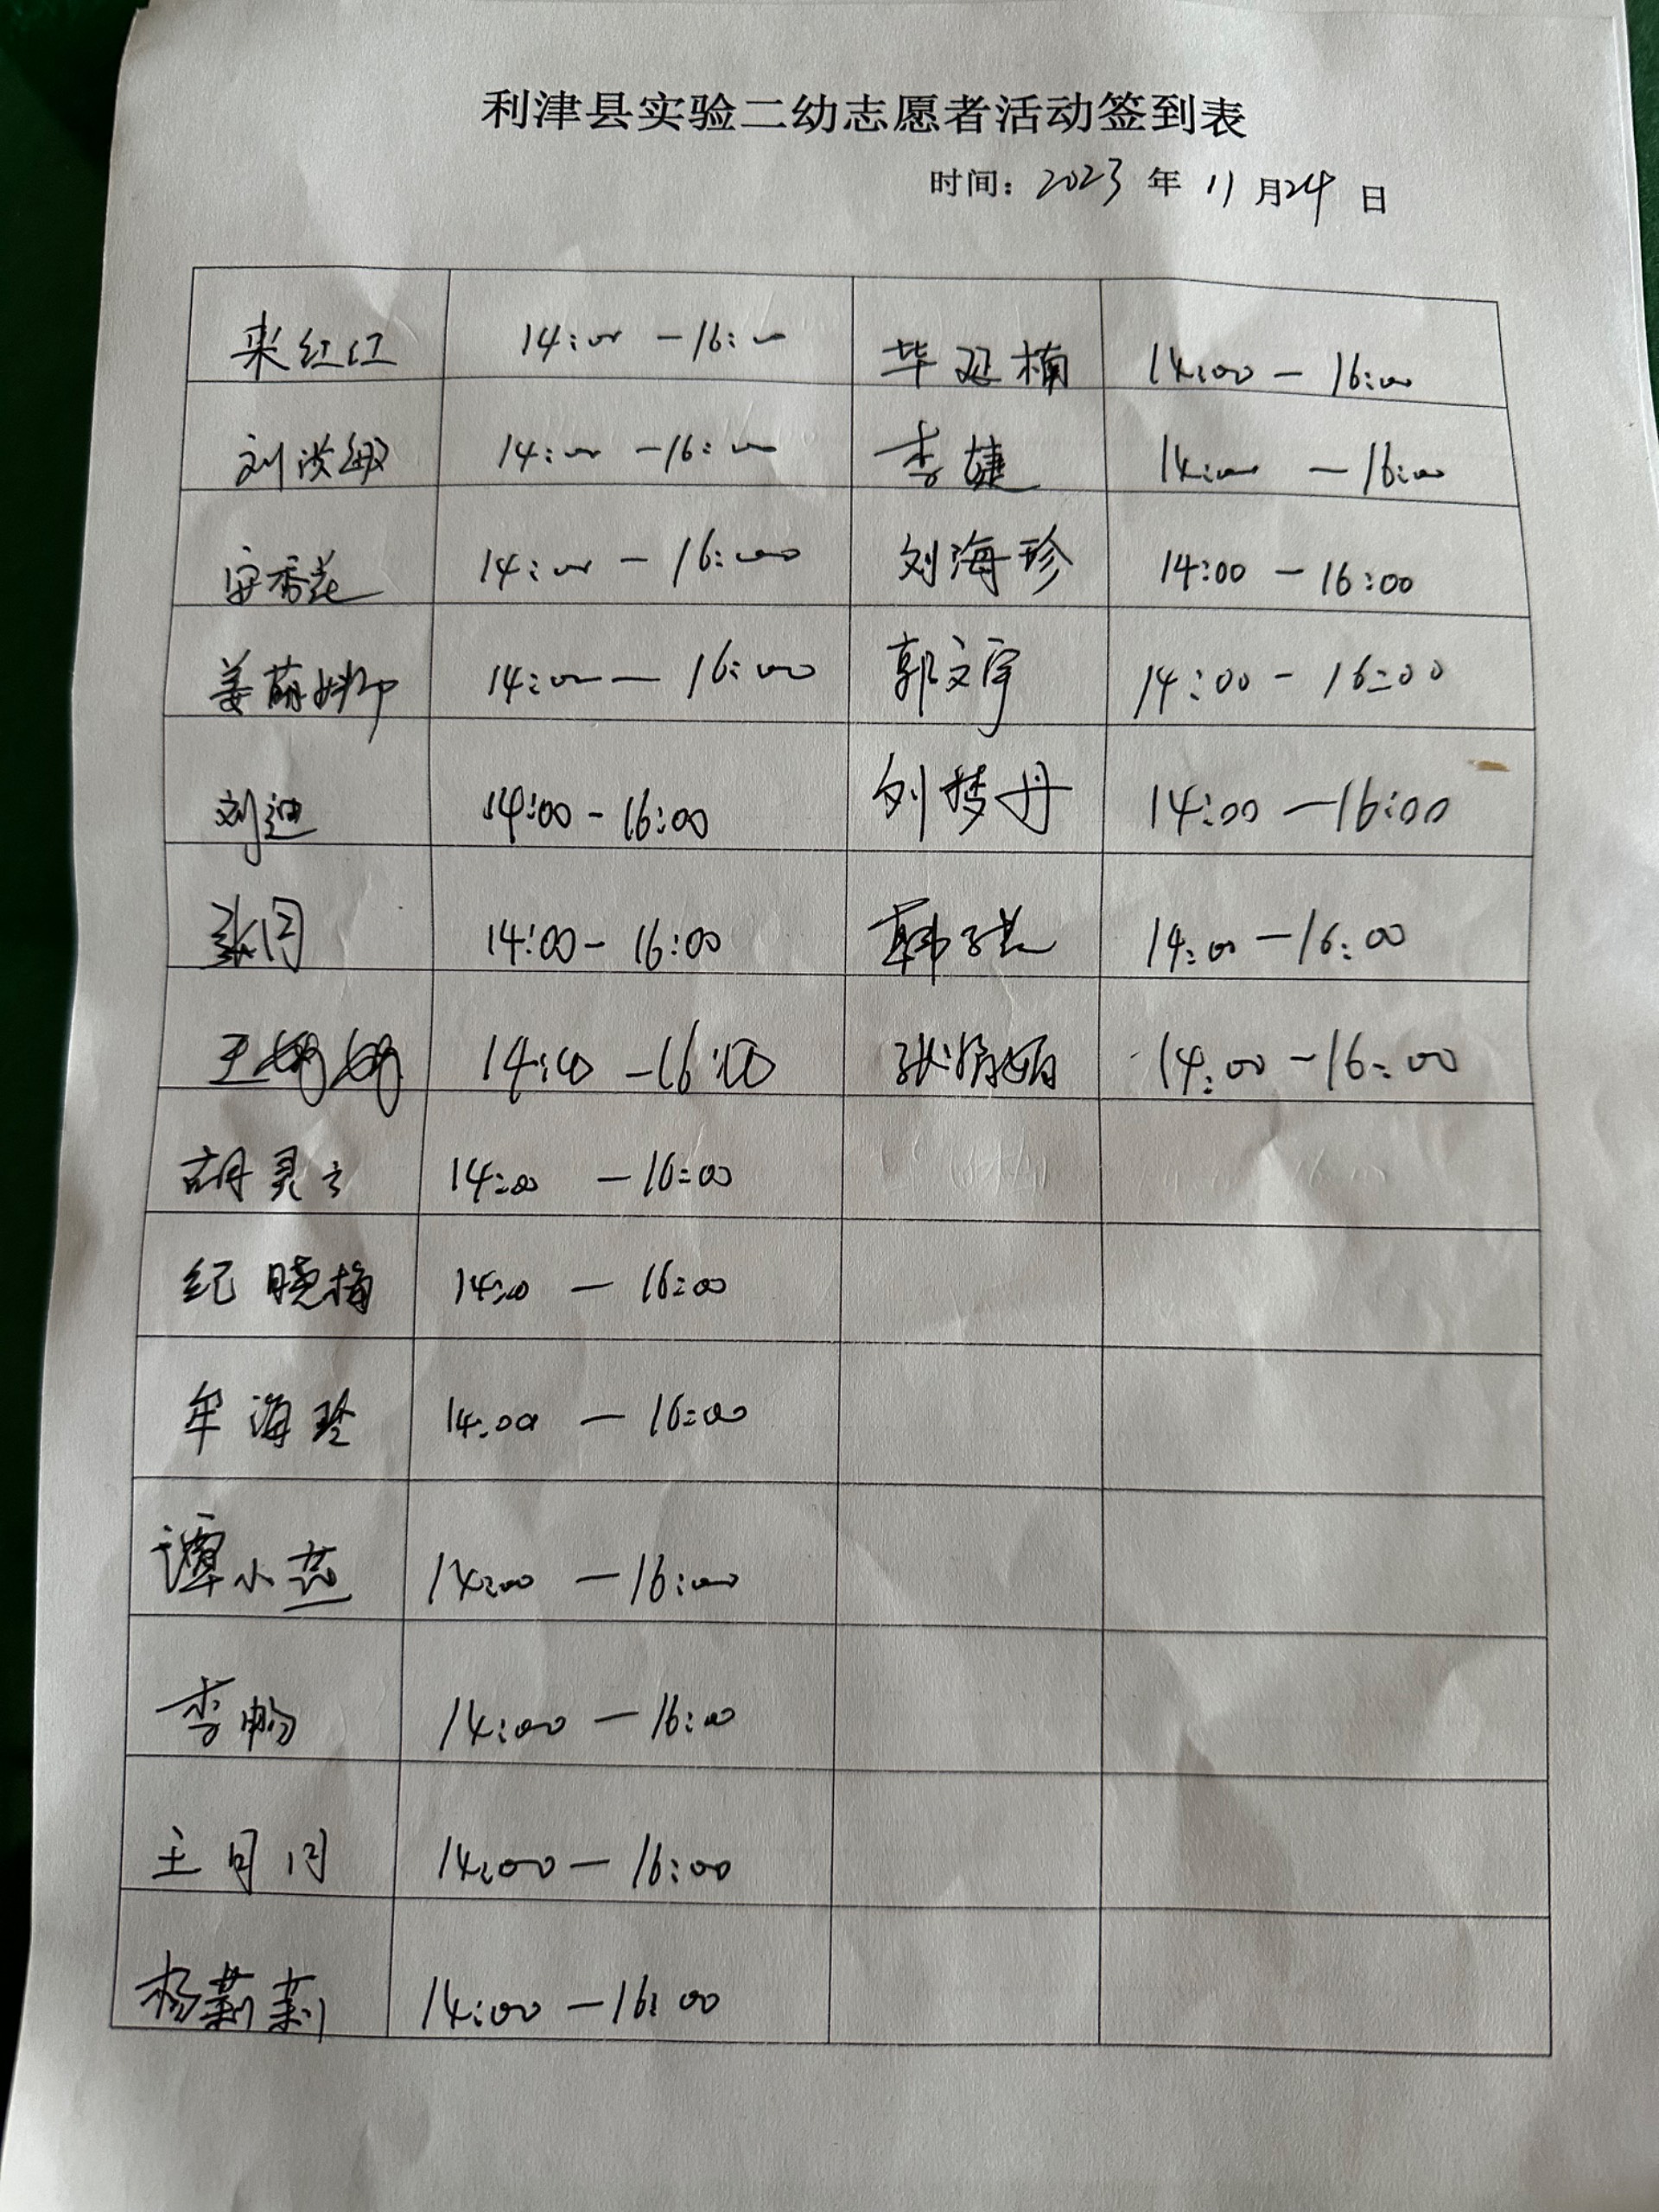 利津县实验二幼志愿者活动签到表
时间：2023 年 11 月 24 日
14:00 - 16:00 毕延楠 14:00 - 16:00
刘洪敏 14:00 - 16:00 李婕 14:00 - 16:00
安香花 14:00 - 16:00 刘海珍 14:00 - 16:00
姜萌 14:00 - 16:00 郭文宇 14:00 - 16:00
刘迪 14:00 - 16:00 刘梦丹 14:00 - 16:00
张闪 14:00 - 16:00 韩子 14:00 - 16:00
王娜娜 14:00 - 16:00 张 14:00 - 16:00
胡灵 14:00 - 16:00
纪晓梅 14:00 - 16:00
牟海玲 14:00 - 16:00
谭小燕 14:00 - 16:00
李畅 14:00 - 16:00
王月月 14:00 - 16:00
杨莉莉 14:00 - 16:00